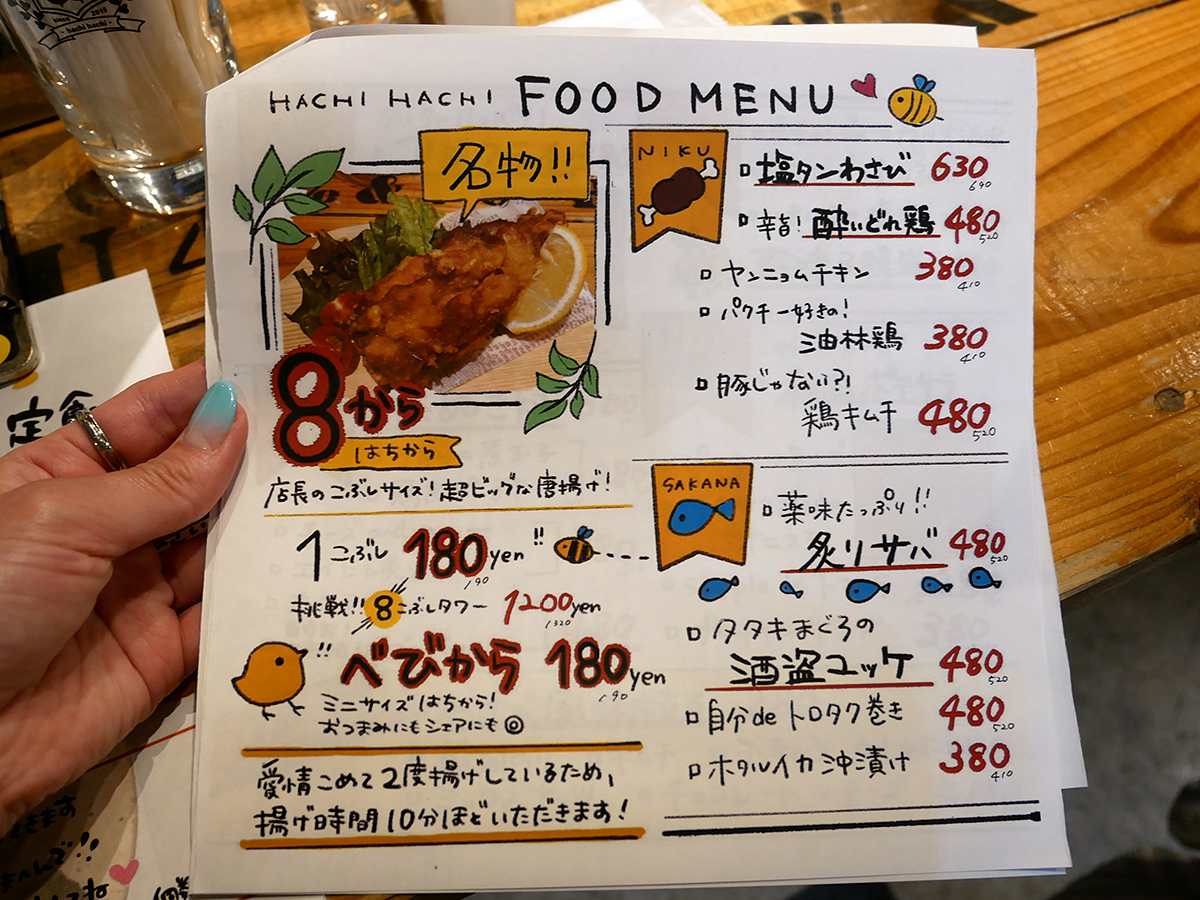 since 2015
- hachi hachi -
HACHI HACHI FOOD MENU
名物!!
8から
はちから
店長のこぶしサイズ!超ビッグな唐揚げ!
1こぶし 180yen!!
190
挑戦!! 8こぶしタワー 1200yen
1320
!! べびから 180yen
190
ミニサイズはちから!
おつまみにもシェアにも◎
愛情こめて2度揚げしているため、
揚げ時間10分ほどいただきます!
NIKU
塩タンわさび 630
690
辛旨! 酔いどれ鶏 480
520
ヤンニョムチキン 380
410
パクチー好きの!
油林鶏 380
410
豚じゃない?!
鶏キムチ 480
520
SAKANA
薬味たっぷり!!
炙りサバ 480
520
タタキまぐろの
酒盗ユッケ 480
520
自分deトロタク巻き 480
520
ホタルイカ沖漬け 380
410
定食